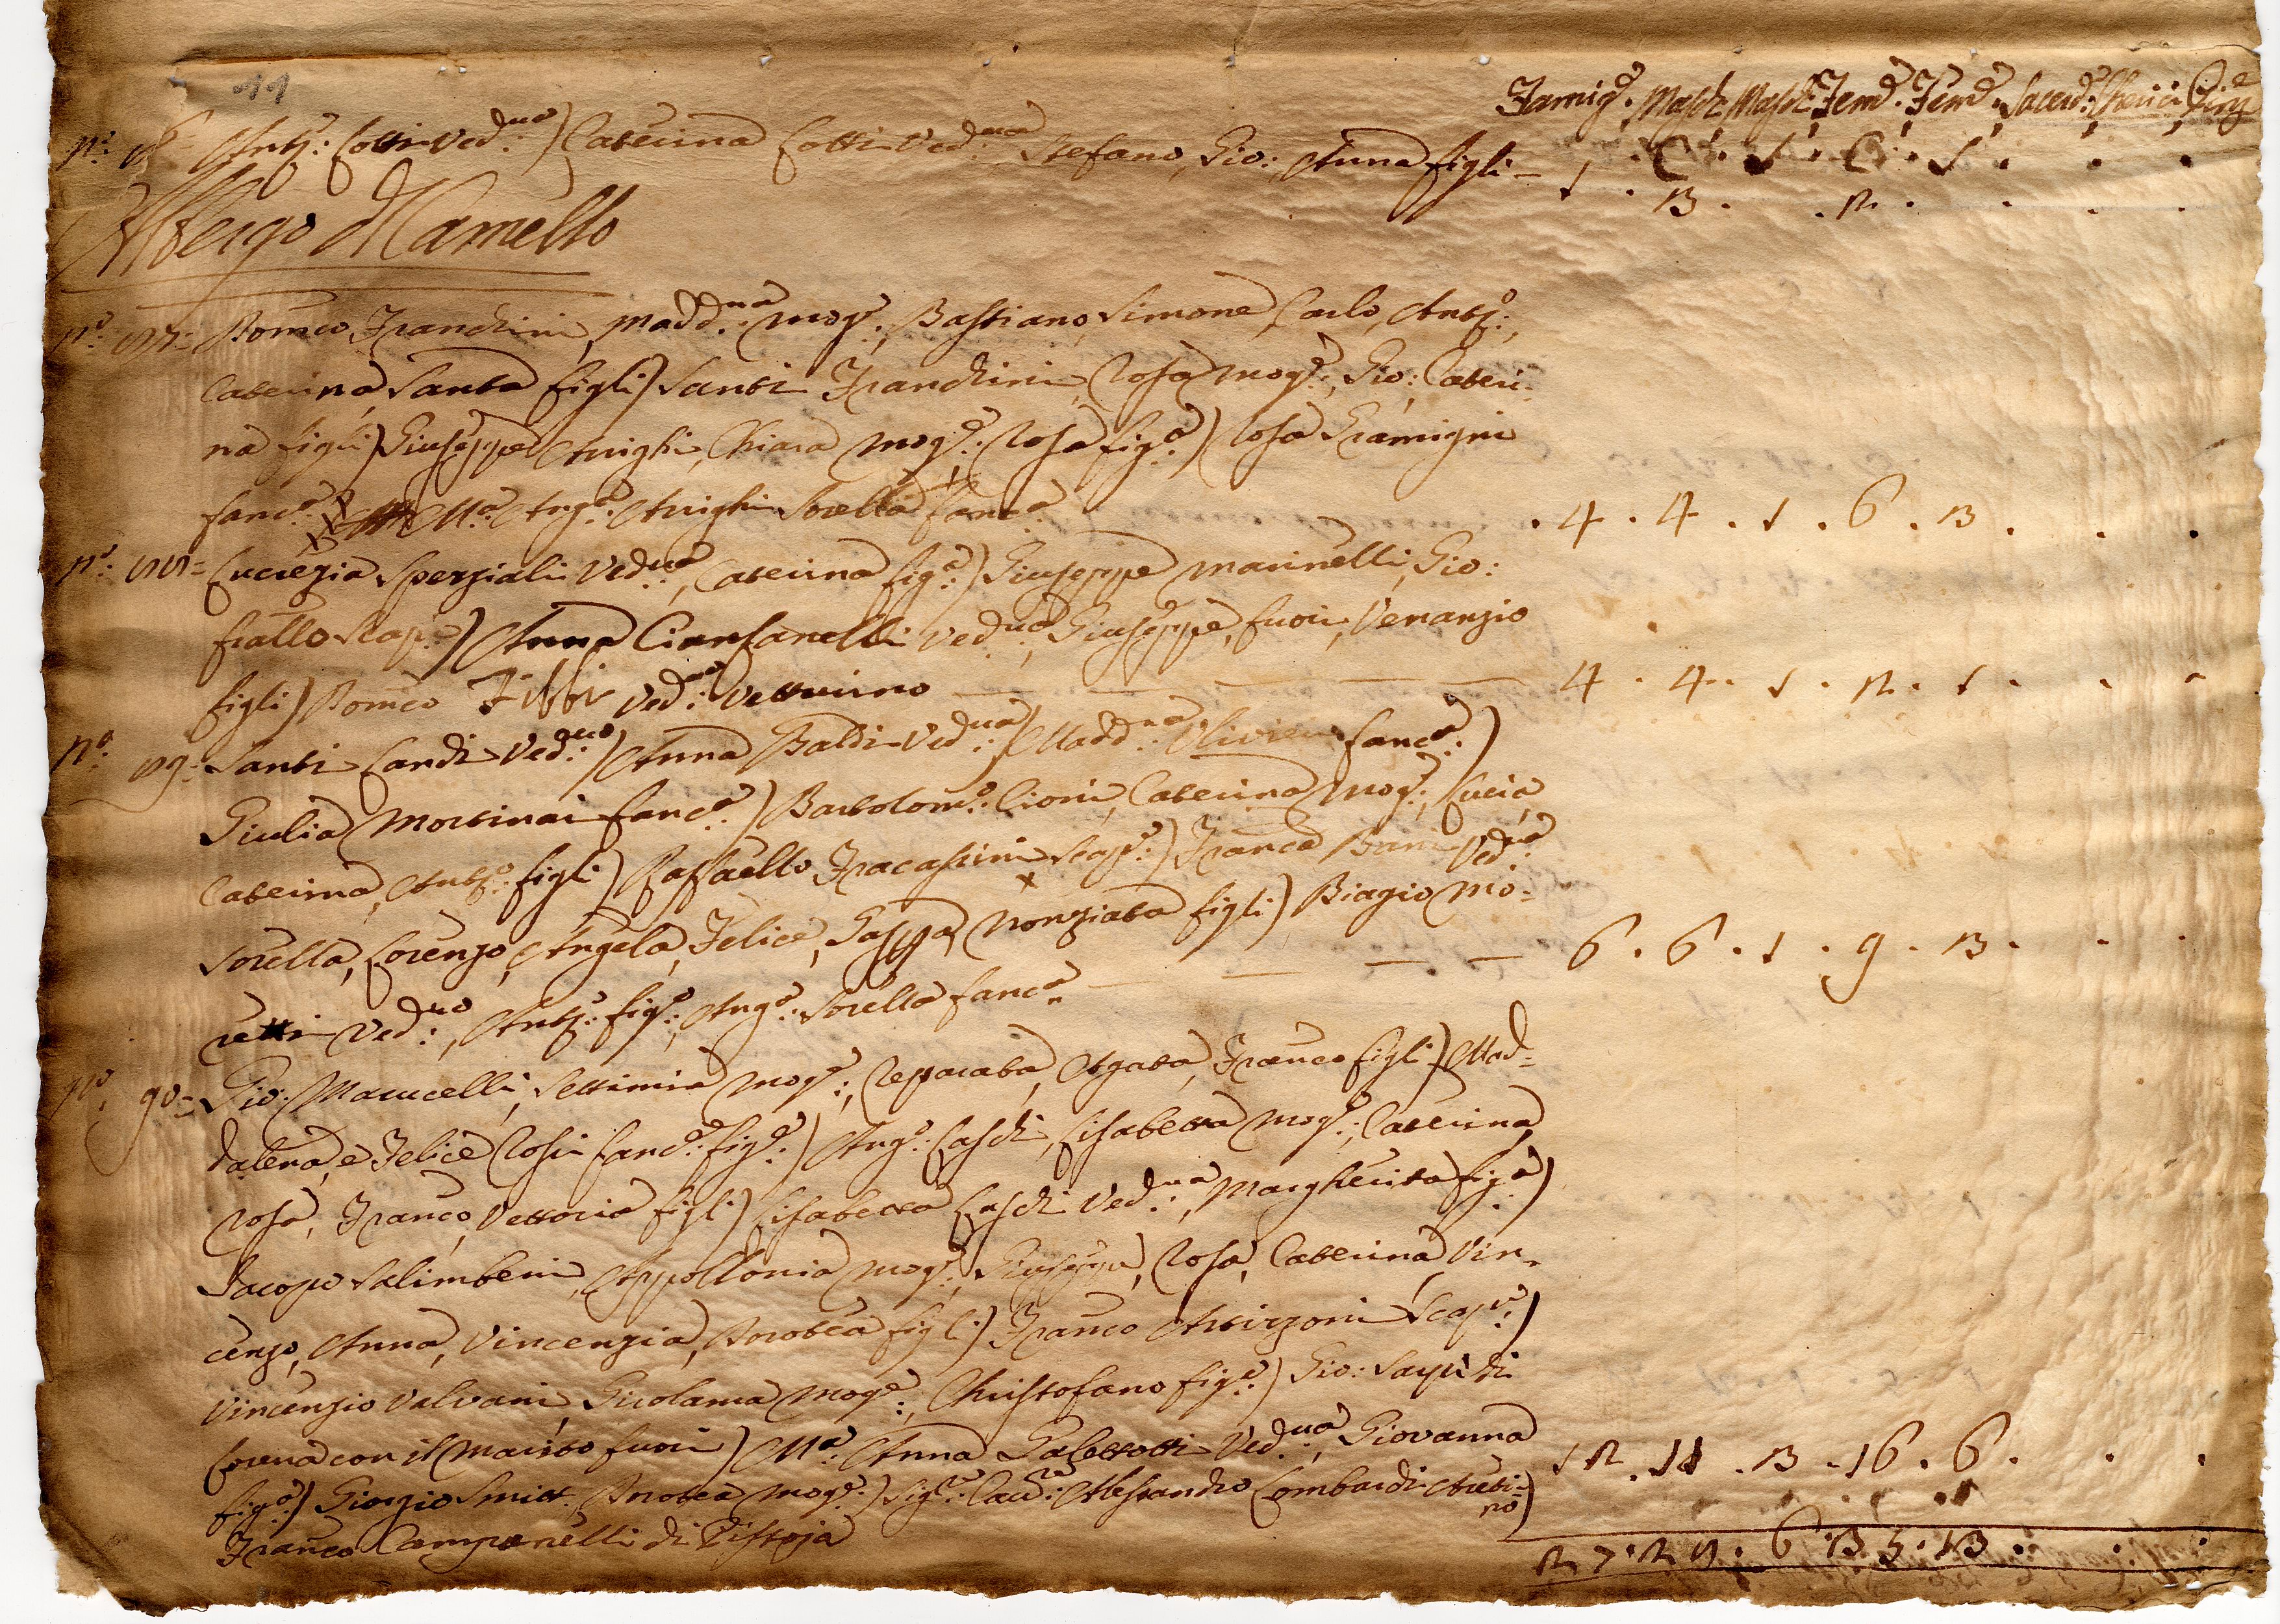 11
Famig.e Masch. Masch. Fem.e Fem.e Sacerd.: Cherici
C. S. C. S.
n.o: Ant.o: Cotti Ved.uo) Caterina Cotti Ved.ua Stefano, Gio:, Anna figli – 1 . 3 . . 2 . . . .
Albergo d Camello
n.o: 87= Romeo Franchini, Madd.na: mog.e:, Bastiano, Simone, Carlo, Ant.o:,
Caterina, Santa figli) Santi Franchini, Rosa mog.e:, Gio: Cateri-
na figli) Giuseppe Arrighi, Chiara mog.e: Rosa fig.a) Rosa Gramigni
fanc.a: M.a: Ang.a: Arrighi Sorella fanc.a . 4 . 4 . 1 . 6 . 3 . . .
n.o: 88= Lucrezia Speziali Ved.ua, Caterina fig.a:) Giuseppe Marinelli, Gio:
fratello scap.o) Anna Cianfanelli Ved.ua, Giuseppe, fuori, Venanzio
figli) Romeo Ved.o: Vetturino — 4 . 4 . 1 . 2 . 1 . . .
n.o: 89= Santi Landi Ved.uo) Anna Baldi Ved.ua) Madd.na: Olivieri fanc.a:)
Giulia Mortinai fanc.a:) Bartolom.o: Cioni, Caterina mog.e:, Lucia,
Caterina, Ant.o: figli) Raffaello Fracassini scap.o:) Franc.a Ved.ua
sorella, Lorenzo, Angela, Felice, Gaspa, Nonziata figli) Biagio Mo-
retti Ved.uo, Ant.o: fig.o:, Ang.a: Sorella fanc.a — 6 . 6 . 1 . 9 . 3 . . .
n.o: 90= Gio: Marucelli, Settimia mog.e:, Reparata, Agata, Franco figli) Mad-
dalena, e Felice Rosi fanc.e: fig.e:) Ang.o: Caschi, Lisabetta mog.e:, Caterina,
Rosa, Franco, Vettoria figli) Lisabetta Ved.ua, Margherita fig.a)
Jacopo Salimbeni, Appollonia mog.e:, Giuseppe, Rosa, Caterina, Vin-
cenzo, Anna, Vincenzia, Dorotea figli) Franco scap.o:)
Vincenzio Valvani, Girolama mog.e:, Christofano fig.o:) Gio:
Lorena con il marito fuori) M.a: Anna Galeotti Ved.ua, Giovanna
fig.a:) Giorgio Smitt. Dorotea mog.e:) Sig.re: Cav.re: Alessandro Lombardi Areti-
no) 12 . 11 . 3 . 16 . 6 . . .
Franco Campanelli di Pistoja
27 . 28 . 6 . 35 . 13 . . .